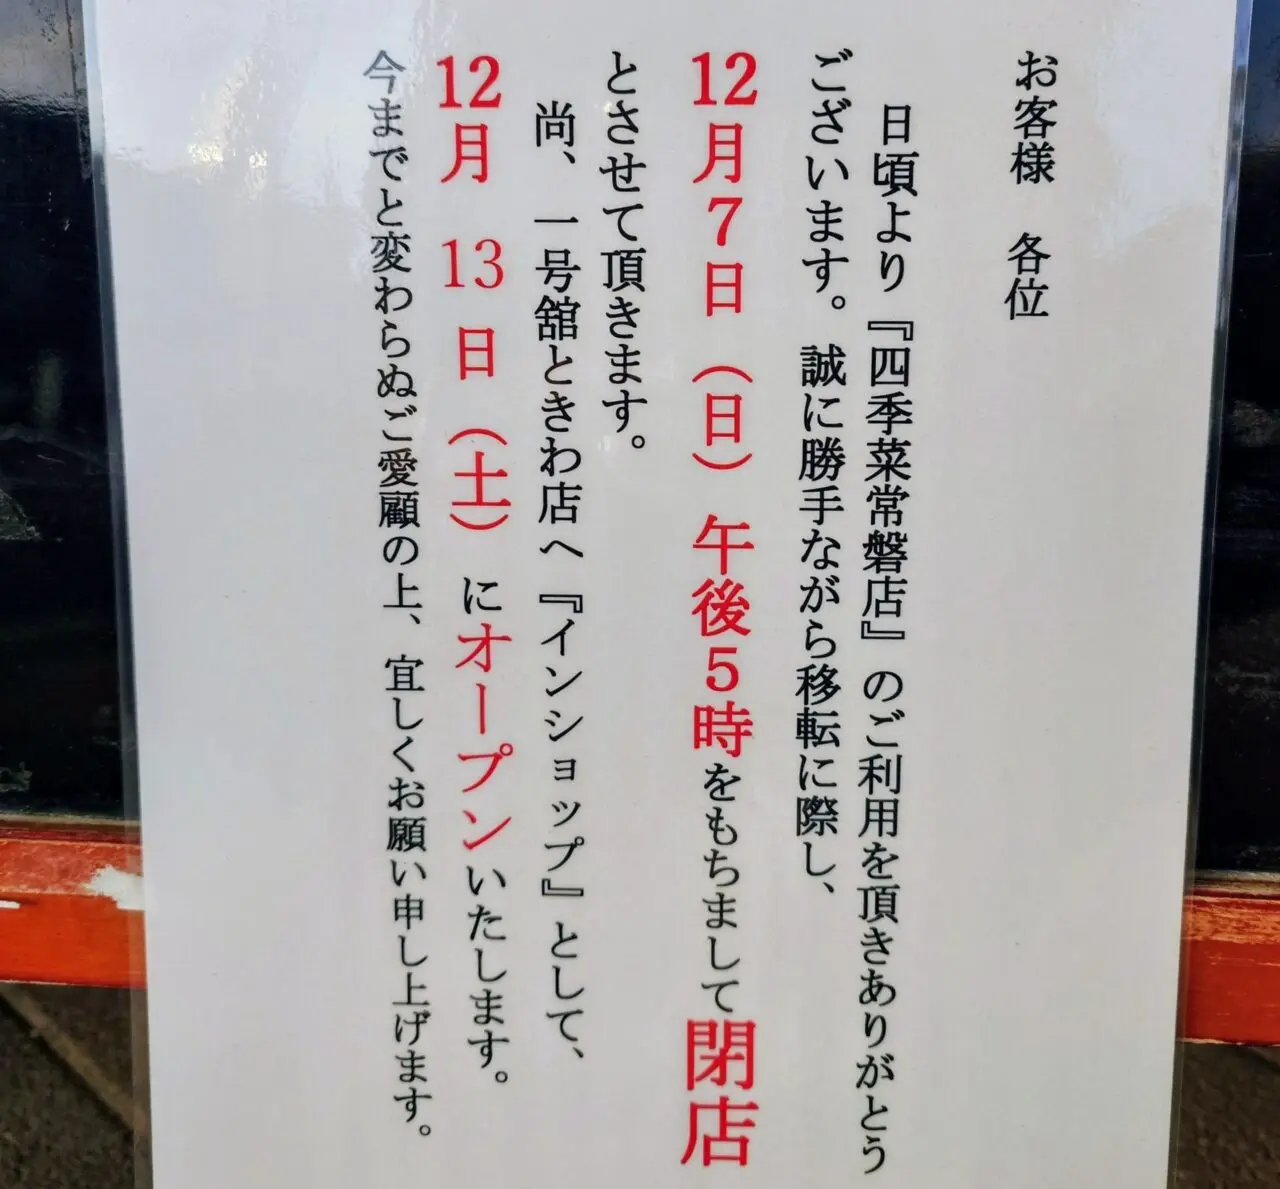 お客様　各位
日頃より『四季菜常磐店』のご利用を頂きありがとう
ございます。誠に勝手ながら移転に際し、
12月7日（日）午後5時をもちまして閉店
とさせて頂きます。
尚、一号舘ときわ店へ『インショップ』として、
12月 13日（土）にオープンいたします。
今までと変わらぬご愛顧の上、宜しくお願い申し上げます。